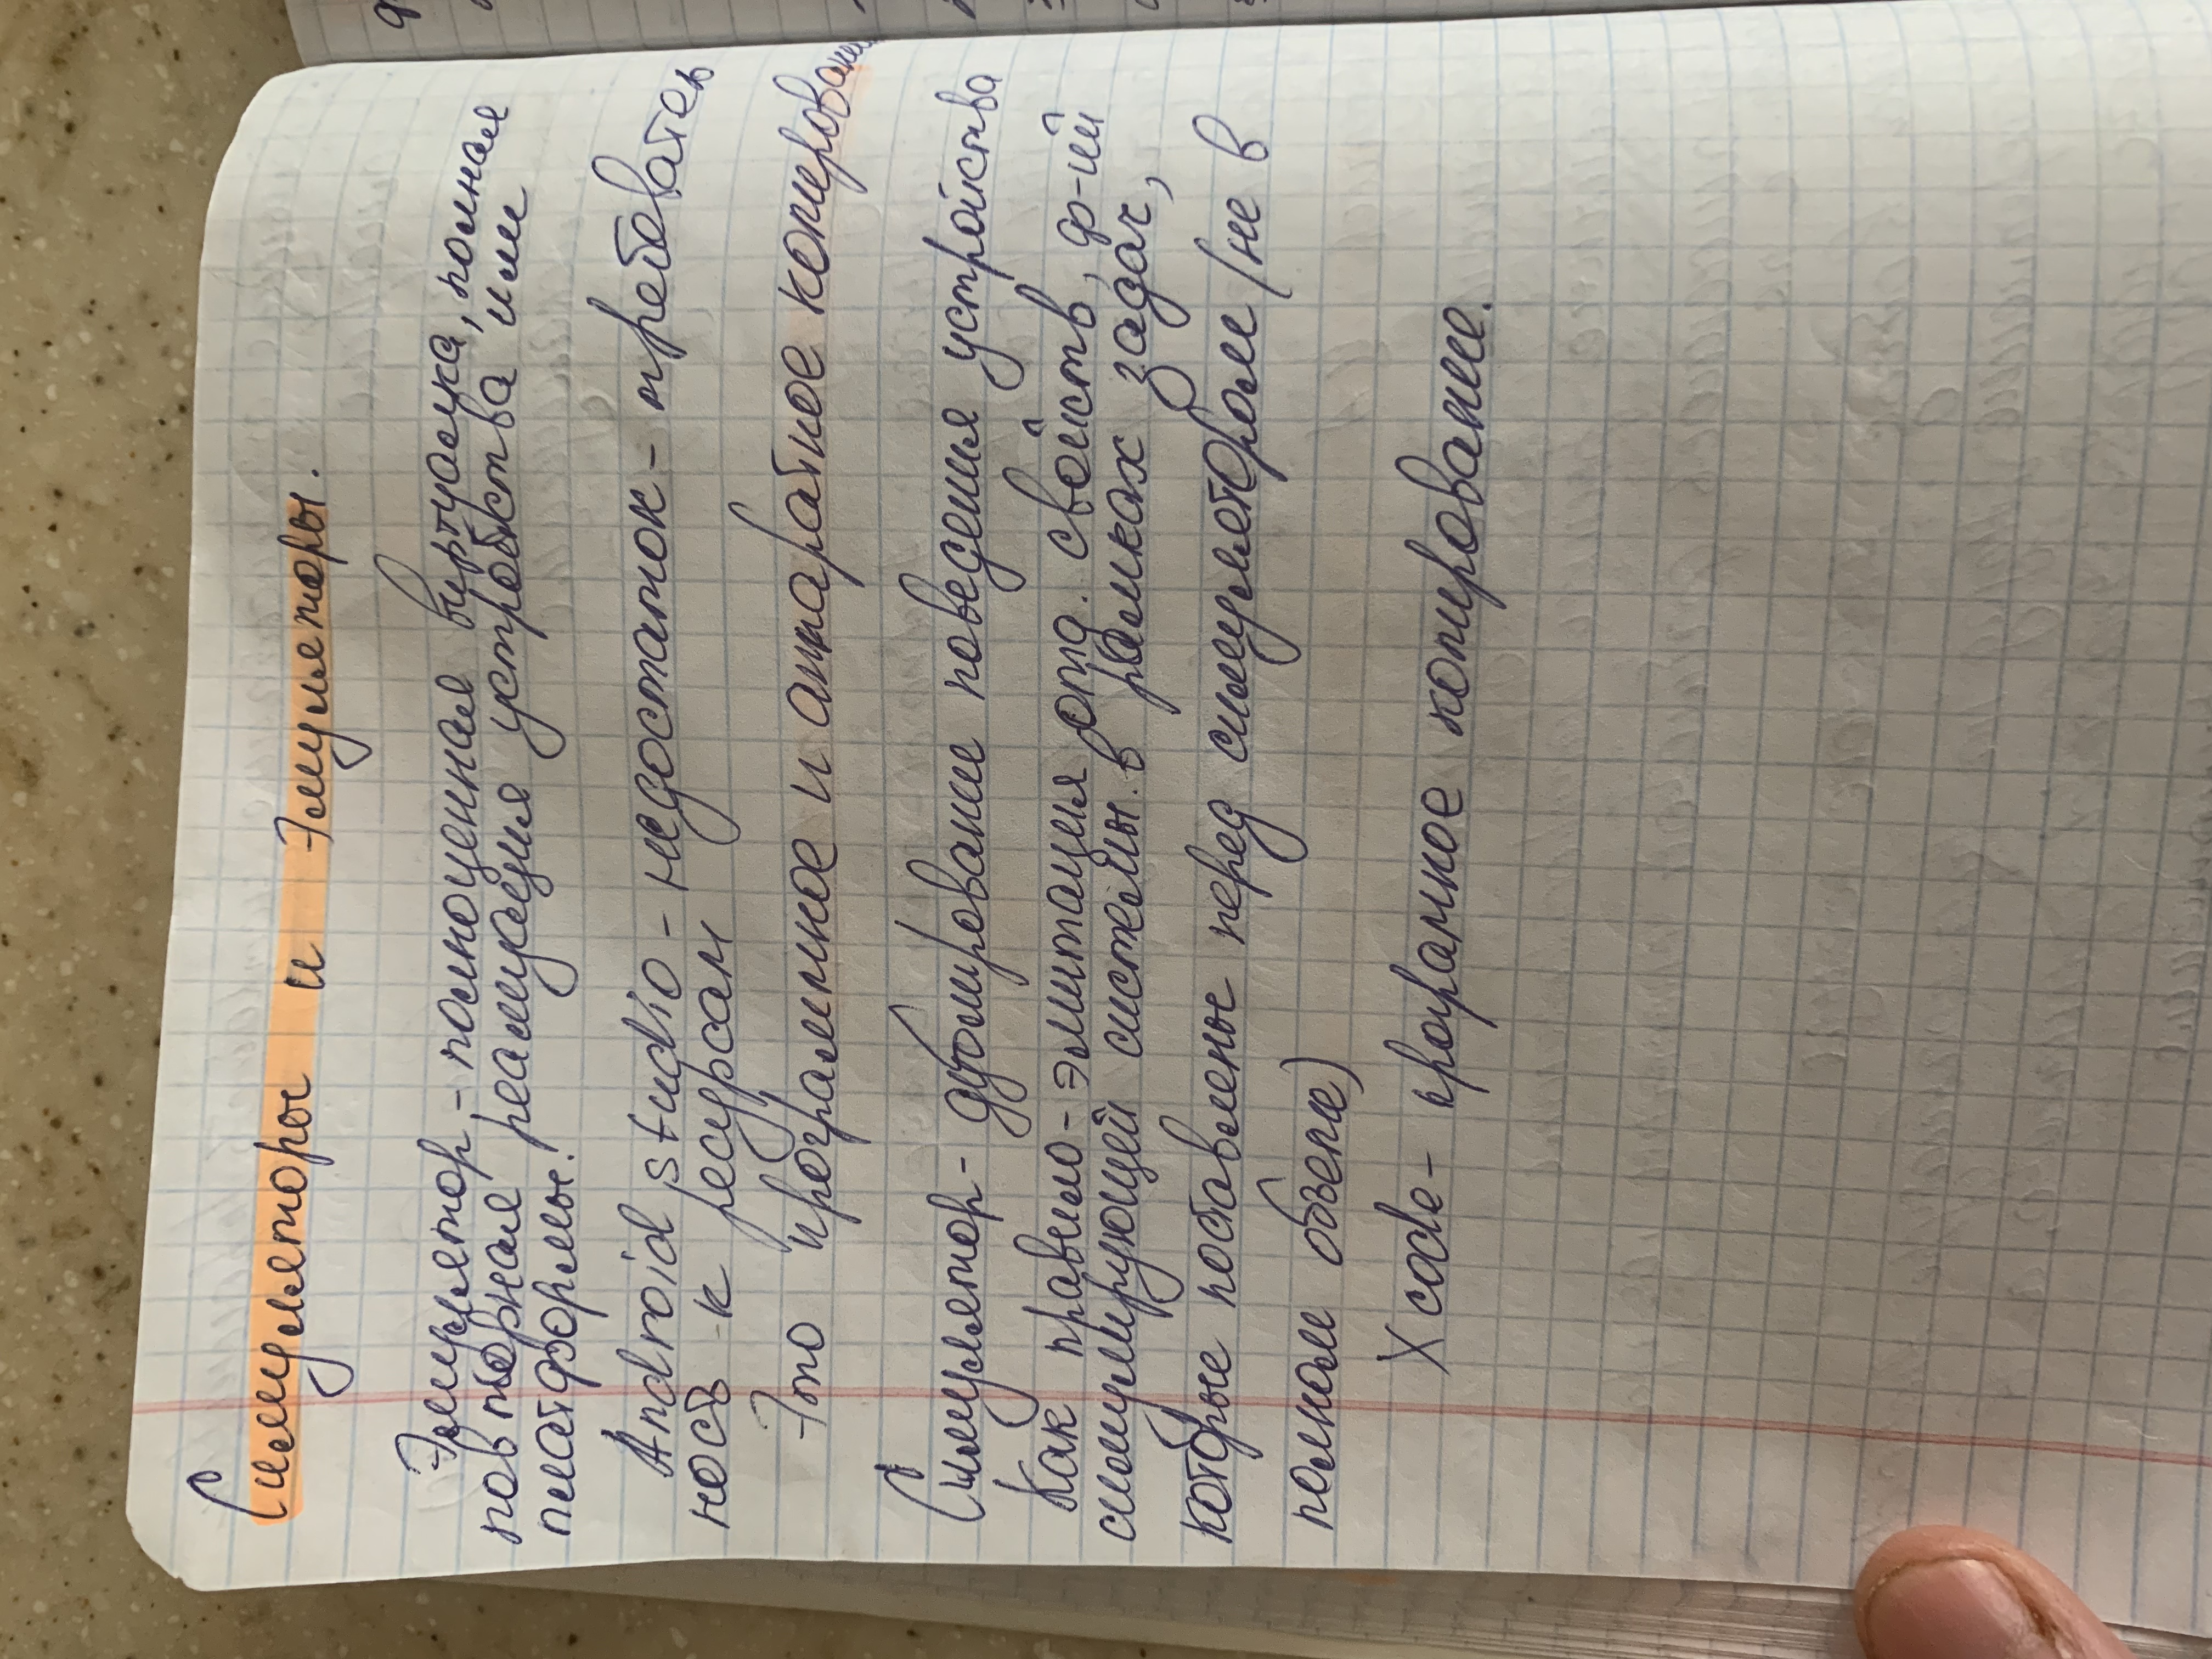 Симуляторы и Эмуляторы.
Эмулятор - полноценная виртуалка, полная
повторная реализация устройства или
платформы.
Android studio - недостаток - требователь
ность к ресурсам
Это программное и аппаратное копирование
Симулятор - дублирование поведения устройства
Как правило - эмитация отд. свойств, ф-ий
симулирующей системы в рамках задач,
которые поставлены перед симулятором (не в
полном объеме)
Xcode - програмное копирование.